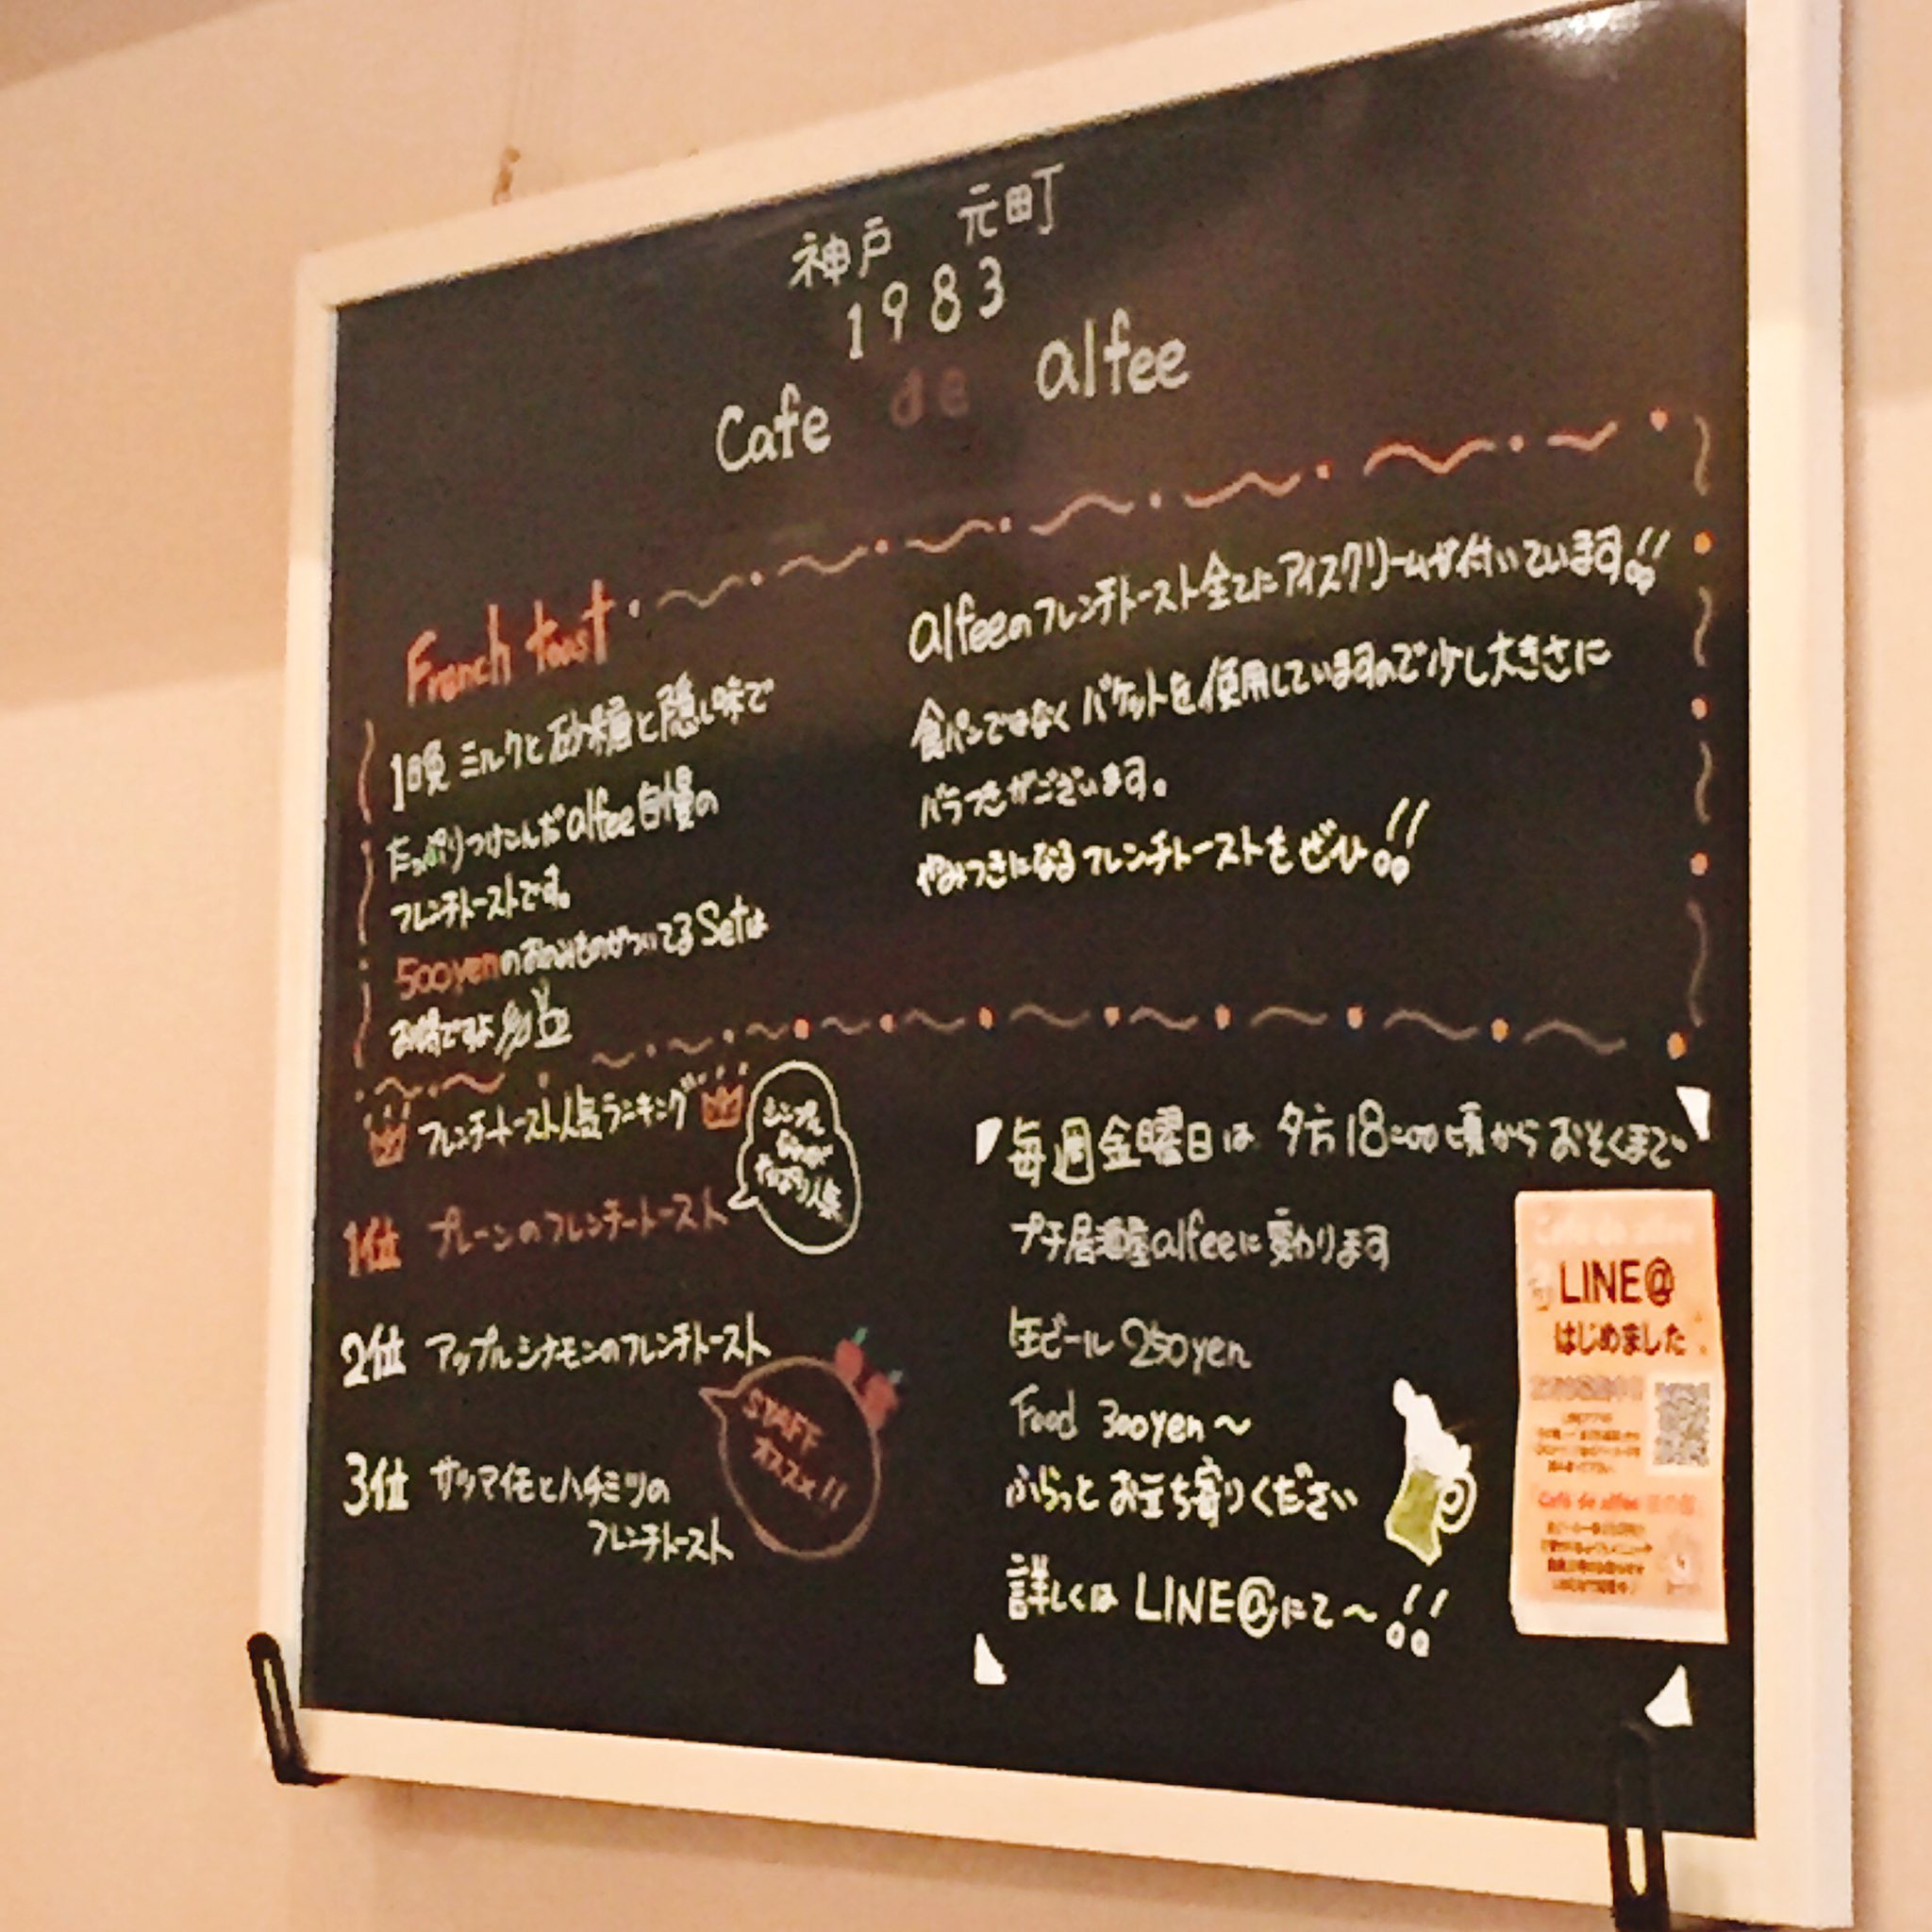 神戸 元町
1983
Cafe de alfee
French toast
1晩 ミルクと砂糖と隠し味で
たっぷりつけこんだalfee自慢の
フレンチトーストです。
500yenのおのみものがついてるSetは
お得ですよ
alfeeのフレンチトースト全てにアイスクリームが付いています!!
食パンではなくバケットを使用していますので少し大きさに
バラつきがございます。
やみつきになるフレンチトーストをぜひ!!
フレンチトースト人気ランキング
1位 プレーンのフレンチートースト
シンプル
やっぱり人気
2位 アップルシナモンのフレンチトースト
STAFF
オススメ!!
3位 サツマイモとハチミツの
フレンチトースト
毎週金曜日は 夕方18:00頃からおそくまで
プチ居酒屋alfeeに変わります
生ビール 250yen
Food 300yen～
ふらっとお立ち寄りください
詳しくは LINE@にて～!!
Cafe de alfee
LINE@
はじめました
Cafe de alfee